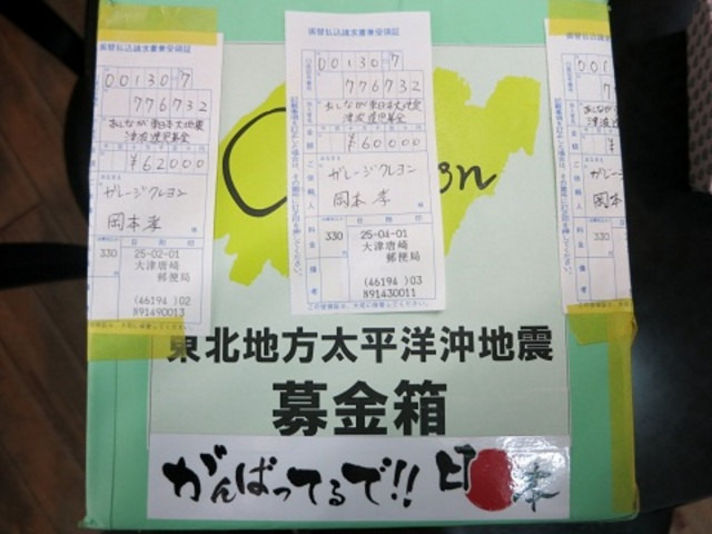 振替払込請求書兼受領証
00130 7
776732
あしなが東日本大地震
津波遺児募金
¥62000
ガレージクレヨン
岡本孝
様
330
25-02-01
大津唐崎
郵便局
(46194)02
N91490013
振替払込請求書兼受領証
00130 7
776732
あしなが東日本大地震
津波遺児募金
¥60000
ご依頼人
ガレージクレヨン
岡本孝
様
料金
備考
日附印
330
25-04-01
大津唐崎
郵便局
(46194)03
N91430011
001
776
あしなが
津波遺
¥6
ガレージ
岡本
330
C
n
東北地方太平洋沖地震
募金箱
がんばってるで!!日本